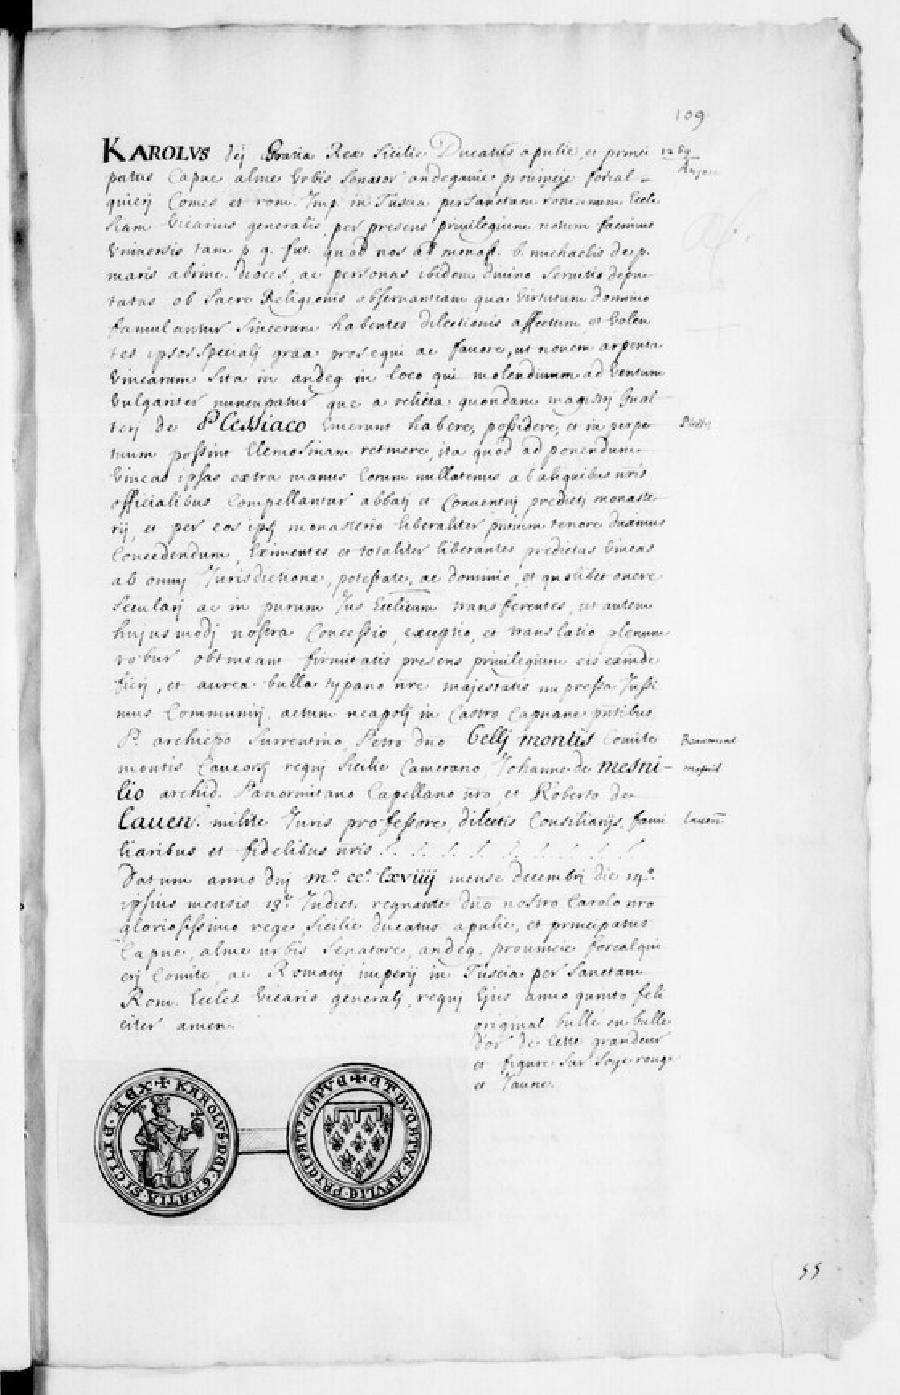 109
KAROLVS dej Gratia Rex Sicilie Ducatus apulie, et princi
1269
Anjou
patus Capue alme Vrbis Senator andegauie prouincje forcal-
quierj Comes et rom. Imp. in Tuscia per Sanctam romanam Eccle
siam Vicarius generalis, per presens priuilegium notum facimus
Vniuersis tam p. q. fut. quod nos ad monast. b. michaelis de p.
maris abrinc. dioces, ac personas ibidem diuino seruitio depu
tatas ob sacre Religionis obseruantiam qua Virtutum domino
famulantur sincerum habentes dilectionis affectum et Volen
tes ipsos specialj graa prosequi ac fauore, ut nouem arpenta
Vinearum Sita in andeg in loco qui molendinum ad Ventum
Vulgariter nuncupatur que a relicta quondam magistrj Gual-
terj de Plessiaco emerunt habere, possidere, et in perpe
Plessis
tuum possint Elemosinam retinere, ita quod ad ponendum
Vineas ipsas extra manus eorum nullatenus ab aliquibus nris
officialibus Compellantur abbatj et Conuentuj predictj monaste
rij, et per eos ipsj monasterio liberaliter presentium tenore duximus
Concedendum, Eximentes et totaliter liberantes predictas Vineas
ab omnj Jurisdictione, potestate, ac dominio, et quolibet onere
Secularj ac in purum Jus Ecclicum transferentes, ut autem
hujusmodj nostra Concessio, exceptio, et translatio plenum
robur obtineant firmitatis presens priuilegium eis exinde
fierj, et aurea bulla typario nre majestatis impressa Jussi
mus Communirj. actum neapolj in Castro Capuano pntibus
P. archiepo Surrentino, Petro dno bellj montis Comite
Beaumont
montis Caueosj regnj Sicilie Camerario, Johanne de mesni-
mesnil
lio archid. Panormitano Capellano nro, et Roberto de
Cauen. milite Juris professore, dilectis Consiliarijs, fami
liaribus et fidelibus nris
Datum anno dnj m.° cc.° lxviiij mense decembri die 14.°
ipsius mensis 13.e Indict. regnante dno nostro Carolo nro
gloriosissimo rege, Sicilie ducatus apulie, et principatus
Capue, alme urbis Senatore, andeg. prouincie forcalqui
erj Comite, ac Romanj imperij in Tuscia per Sanctam
Rom. Eccles Vicario generalj, regnj Ejus anno quinto feli
citer amen.
original bullé en bulle
d'or de Cette grandeur
et figure Sur Soye rouge
et Jaune.
✝ KAROLVS DEI GRATIA SICILIE REX
✝ DVCATVS APVLIE PRICIPAT CAPVE
55